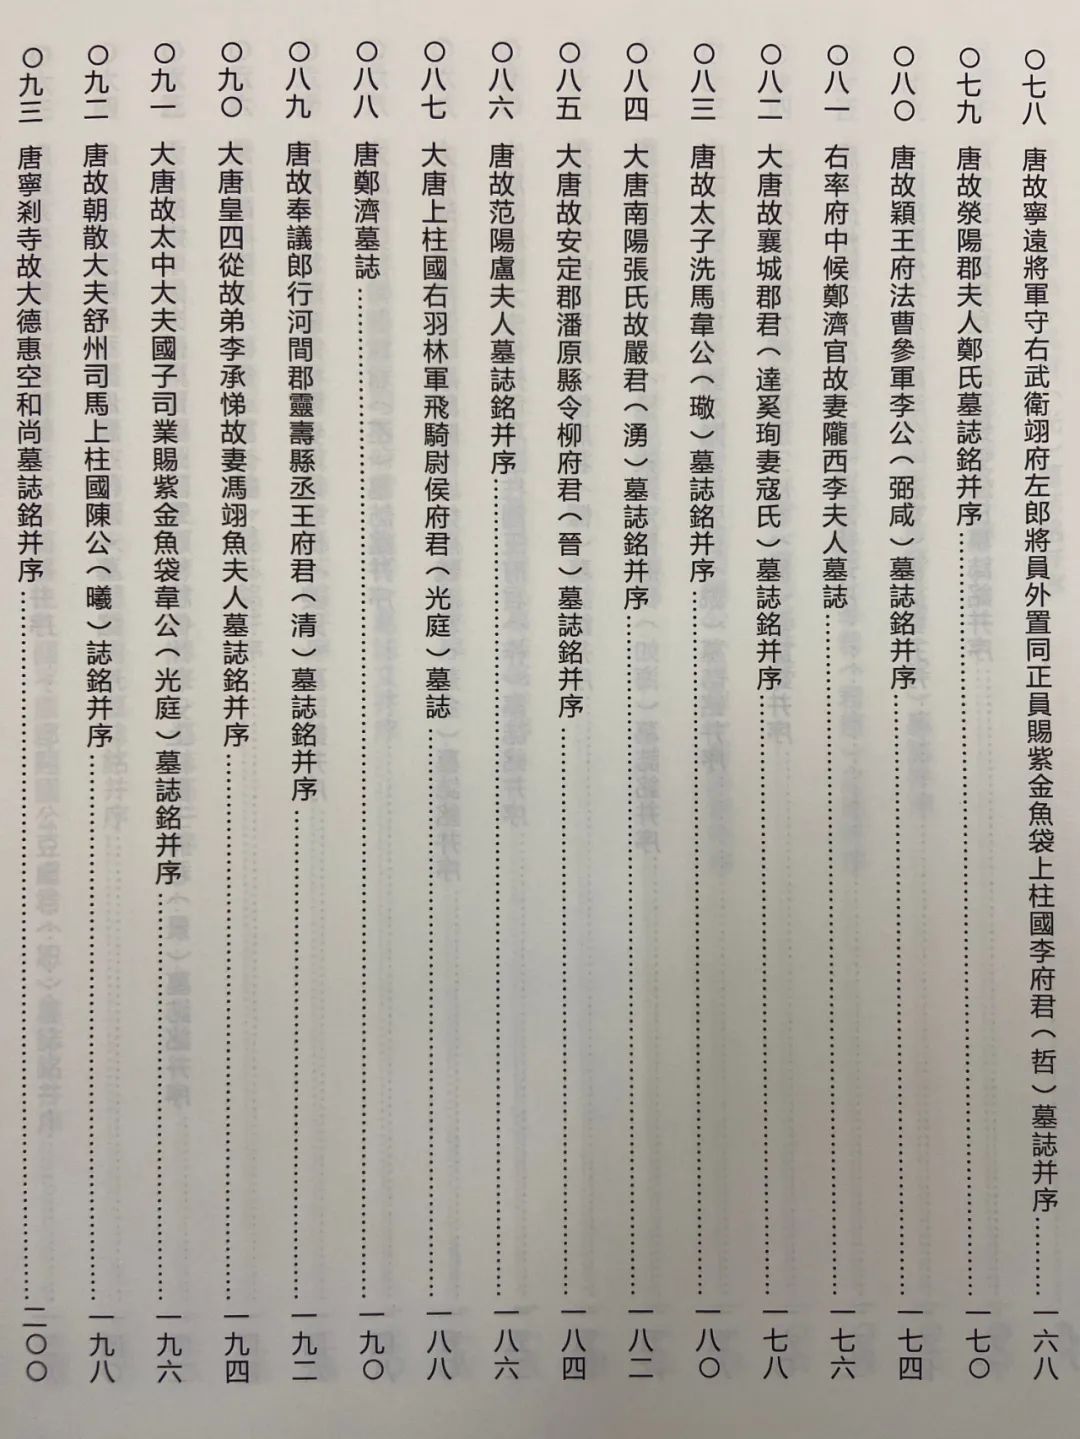 〇七八 唐故寧遠將軍守右武衛翊府左郎將員外置同正員賜紫金魚袋上柱國李府君（哲）墓誌并序…………一六八
〇七九 唐故滎陽郡夫人鄭氏墓誌銘并序…………一七〇
〇八〇 唐故穎王府法曹參軍李公（弼咸）墓誌銘并序…………一七四
〇八一 右率府中候鄭濟官故妻隴西李夫人墓誌…………一七六
〇八二 大唐故襄城郡君（達奚珣妻寇氏）墓誌銘并序…………一七八
〇八三 唐故太子洗馬韋公（璥）墓誌銘并序…………一八〇
〇八四 大唐南陽張氏故嚴君（湧）墓誌銘并序…………一八二
〇八五 大唐故安定郡潘原縣令柳府君（晉）墓誌銘并序…………一八四
〇八六 唐故范陽盧夫人墓誌銘并序…………一八六
〇八七 大唐上柱國右羽林軍飛騎尉侯府君（光庭）墓誌…………一八八
〇八八 唐鄭濟墓誌…………一九〇
〇八九 唐故奉議郎行河間郡靈壽縣丞王府君（清）墓誌銘并序…………一九二
〇九〇 大唐皇四從故弟李承悌故妻馮翊魚夫人墓誌銘并序…………一九四
〇九一 大唐故太中大夫國子司業賜紫金魚袋韋公（光庭）墓誌銘并序…………一九六
〇九二 唐故朝散大夫舒州司馬上柱國陳公（曦）誌銘并序…………一九八
〇九三 唐寧剎寺故大德惠空和尚墓誌銘并序…………二〇〇